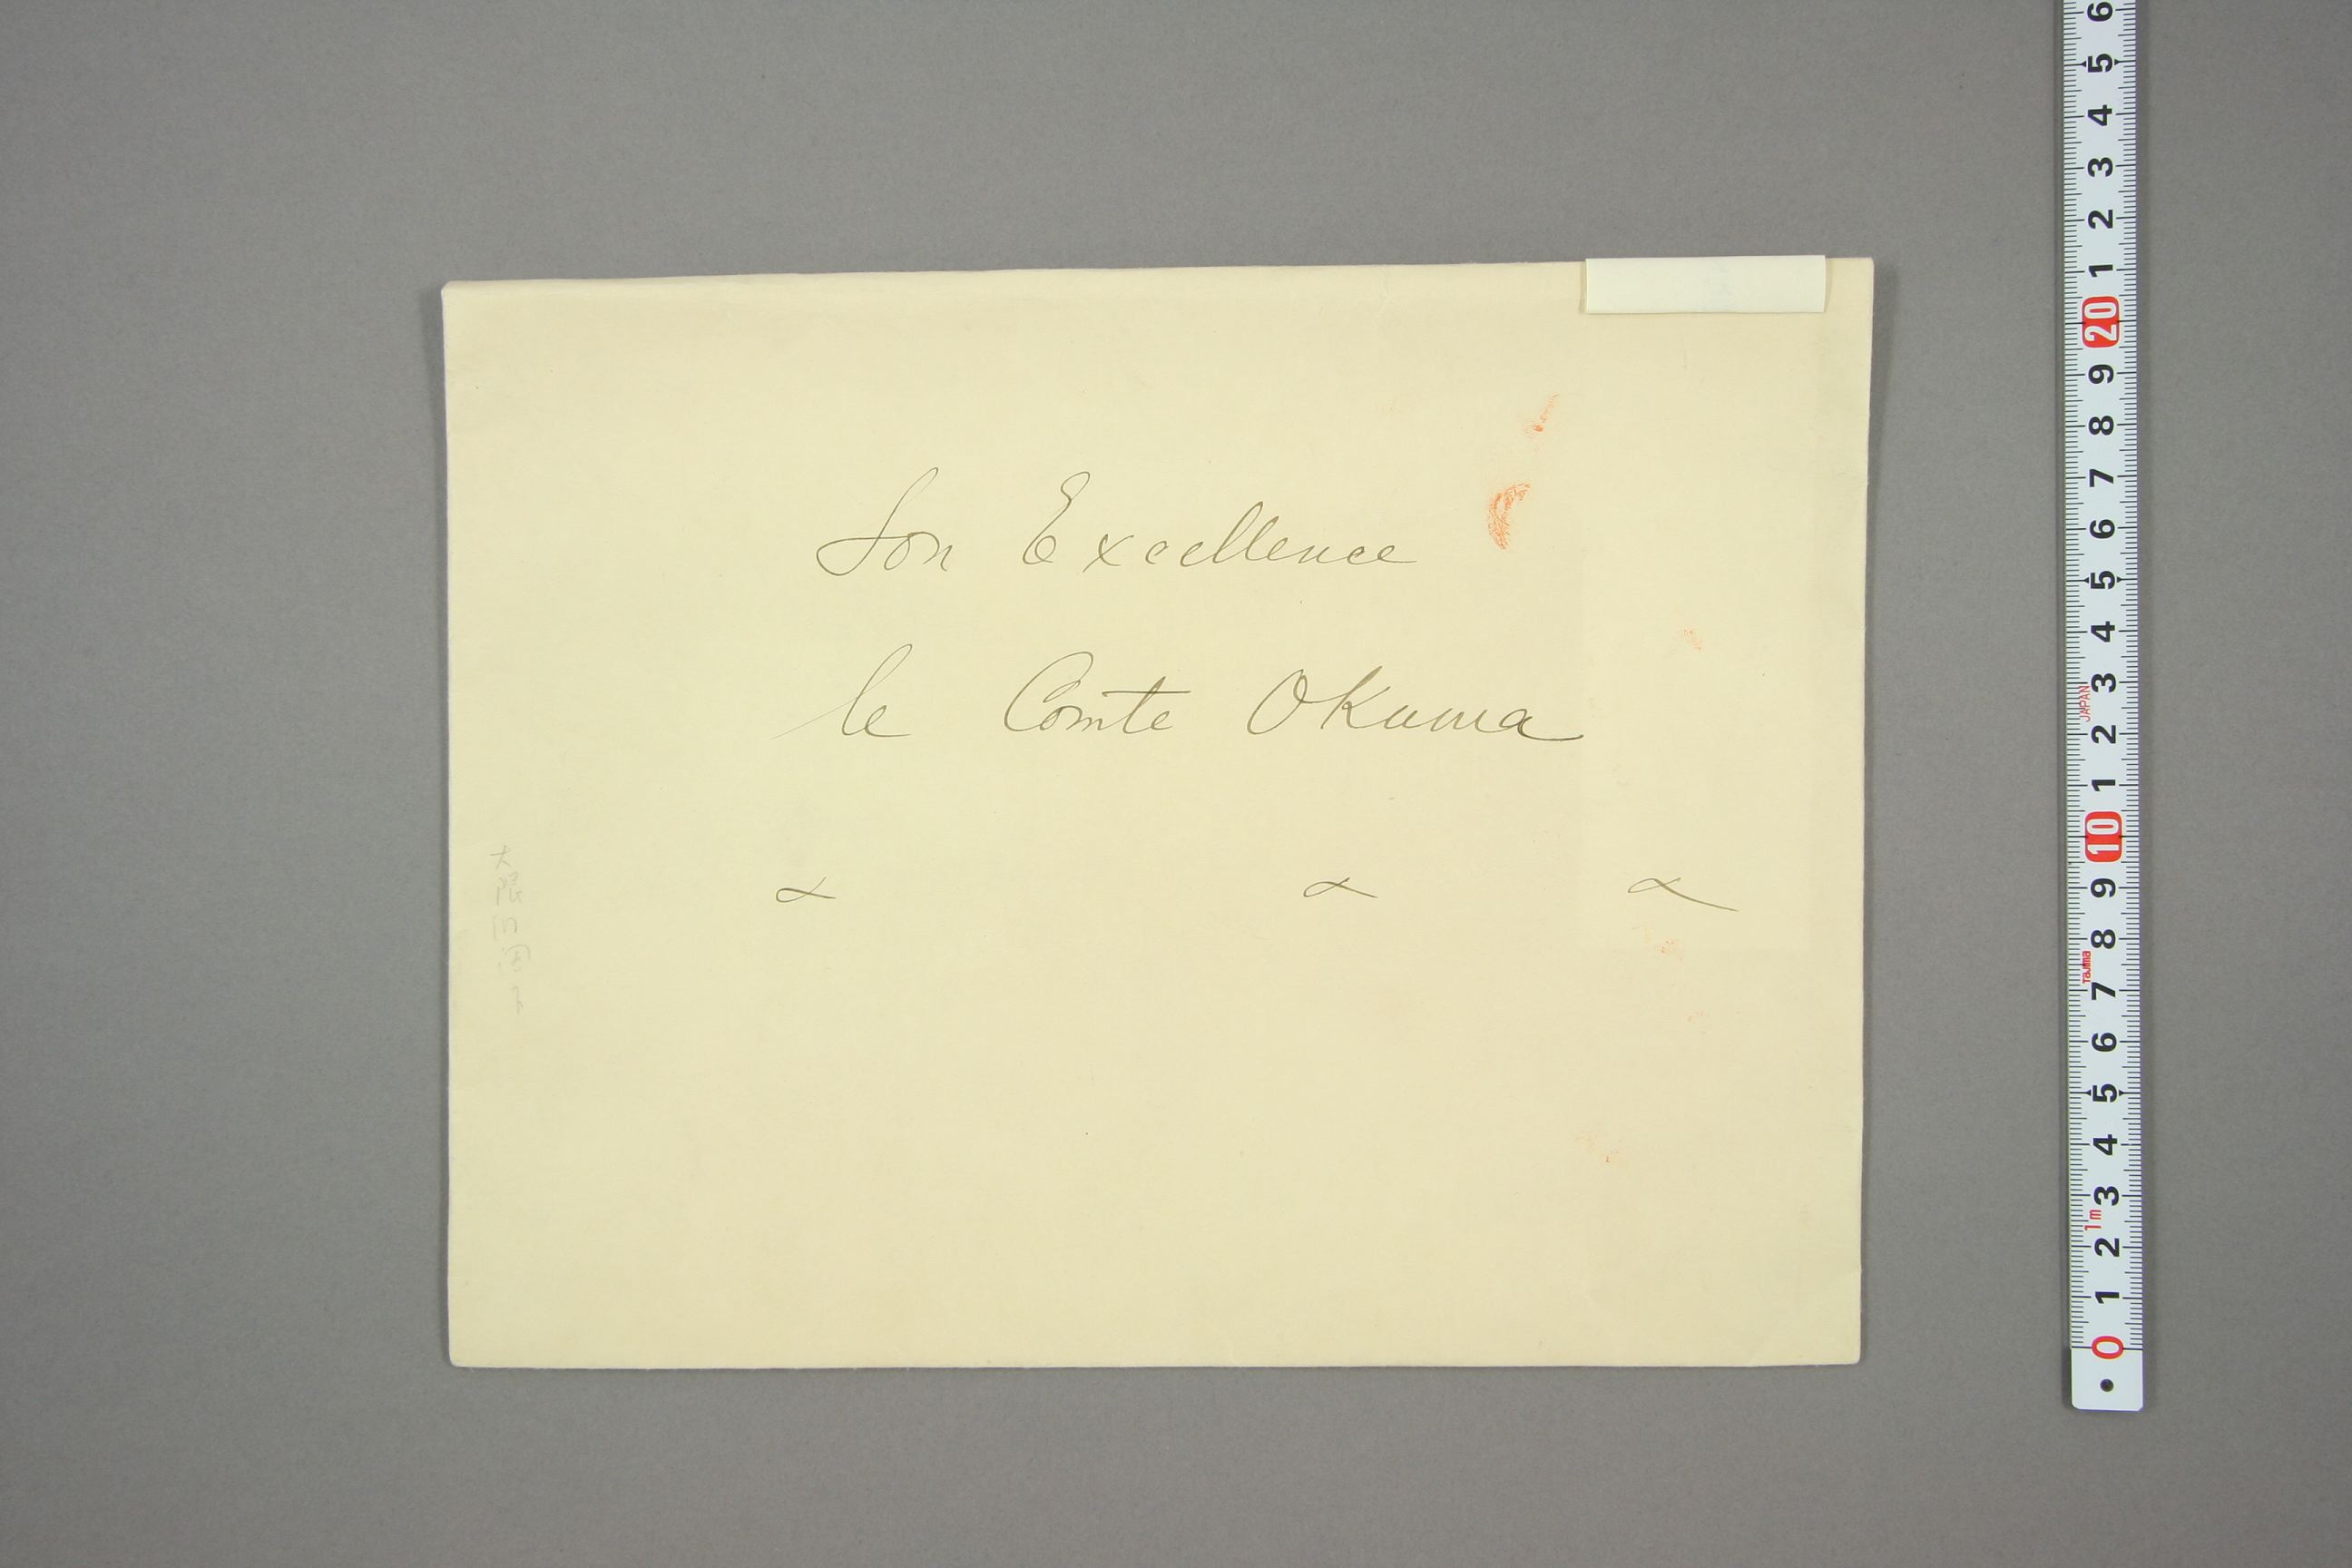 Son Excellence
le Comte Okuma
大隈
6
5
4
3
2
1
20
9
8
7
6
5
4
3
JAPAN
2
1
10
9
8
Tajima
7
6
5
4
3
1m
2
1
0